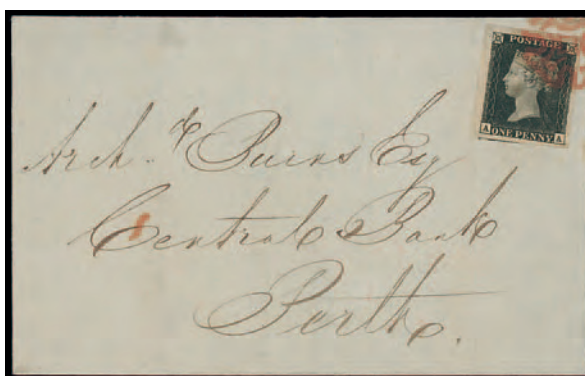 POSTAGE
A ONE PENNY A
Archd. Burns Esq
Central Bank
Perth.